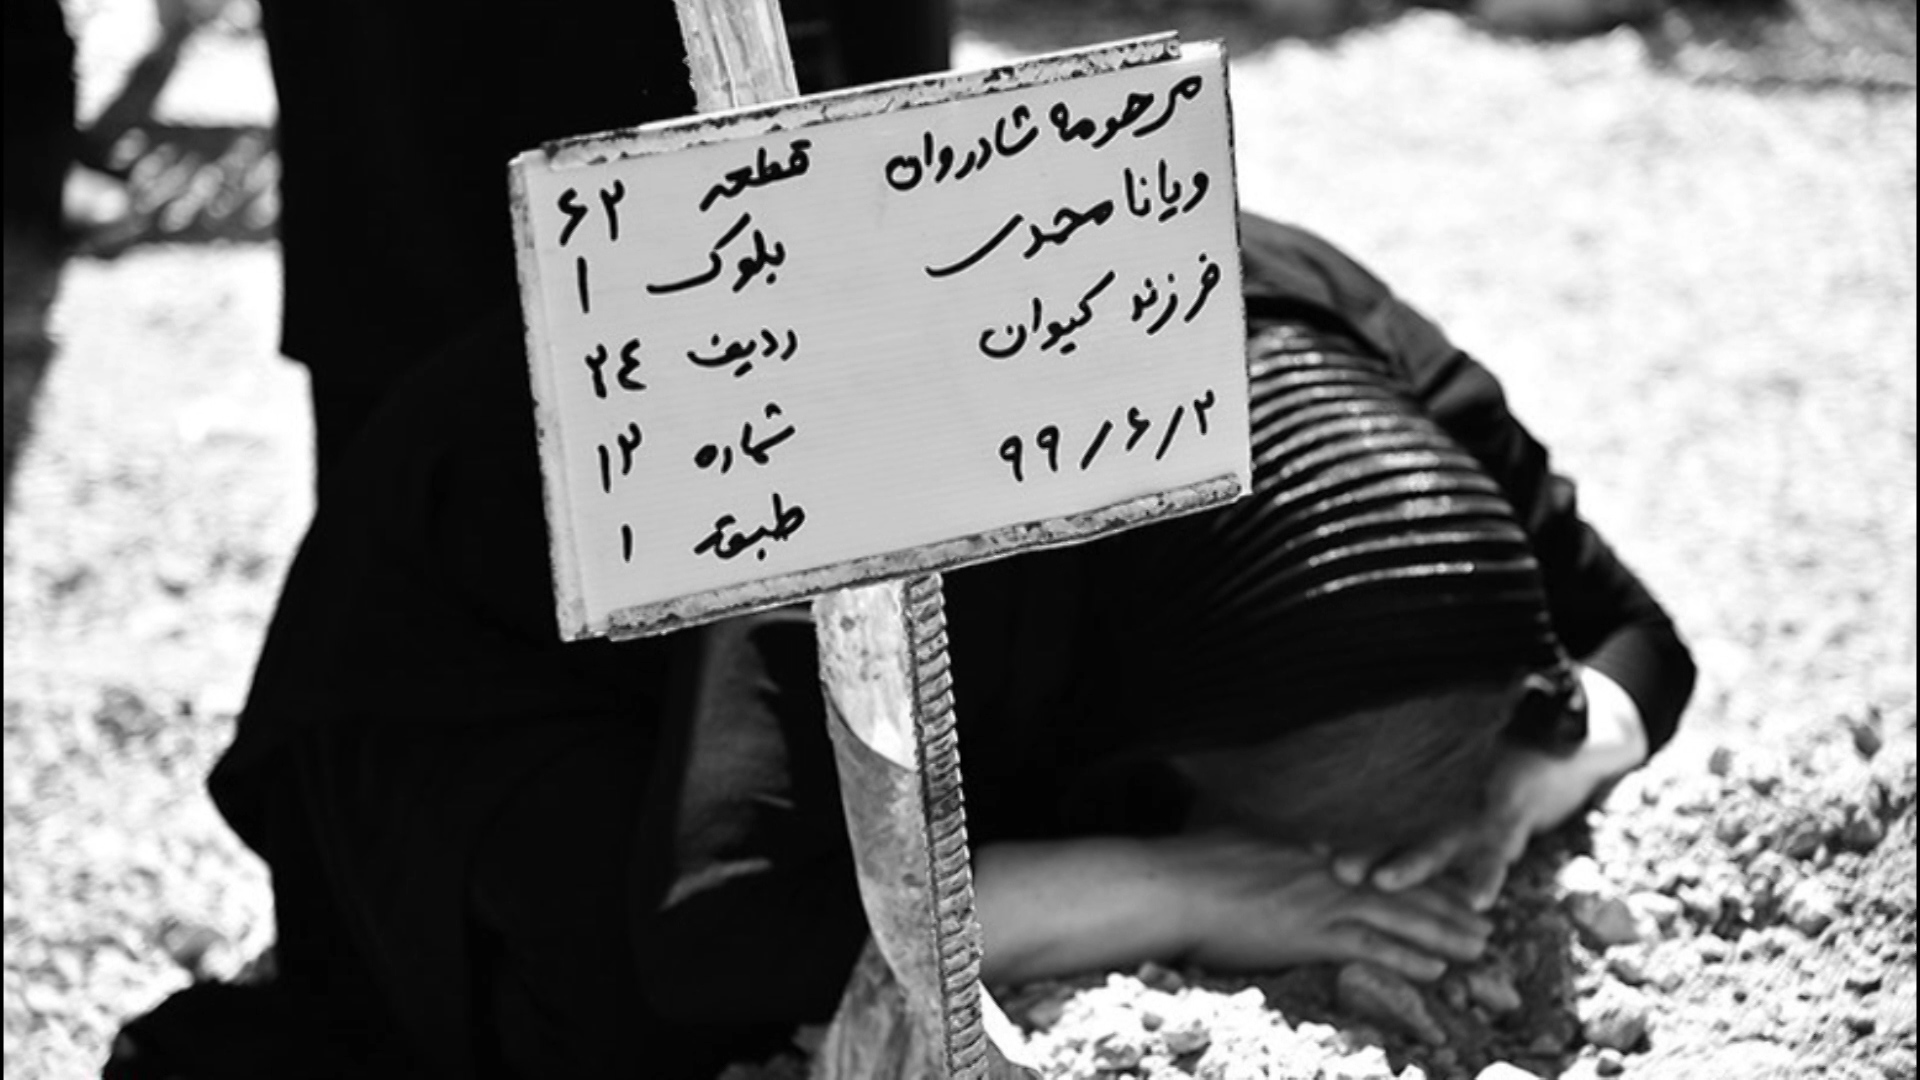 مرحومه شادروان
ویانا محمدی
فرزند کیوان
۹۹/۶/۲
قطعه ۶۲
بلوک ۱
ردیف ۲٤
شماره ۱۲
طبقه ۱